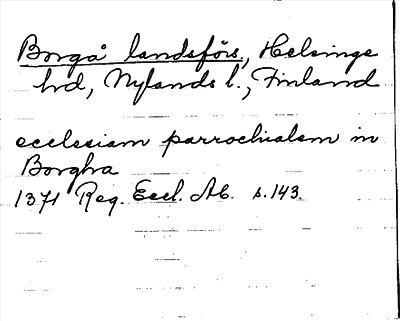 Borgå landsförs., Helsinge
hd, Nylands l., Finland
ecclesiam parrochialem in
Borgha
1371 Reg. Eccl. Ab. s. 143.